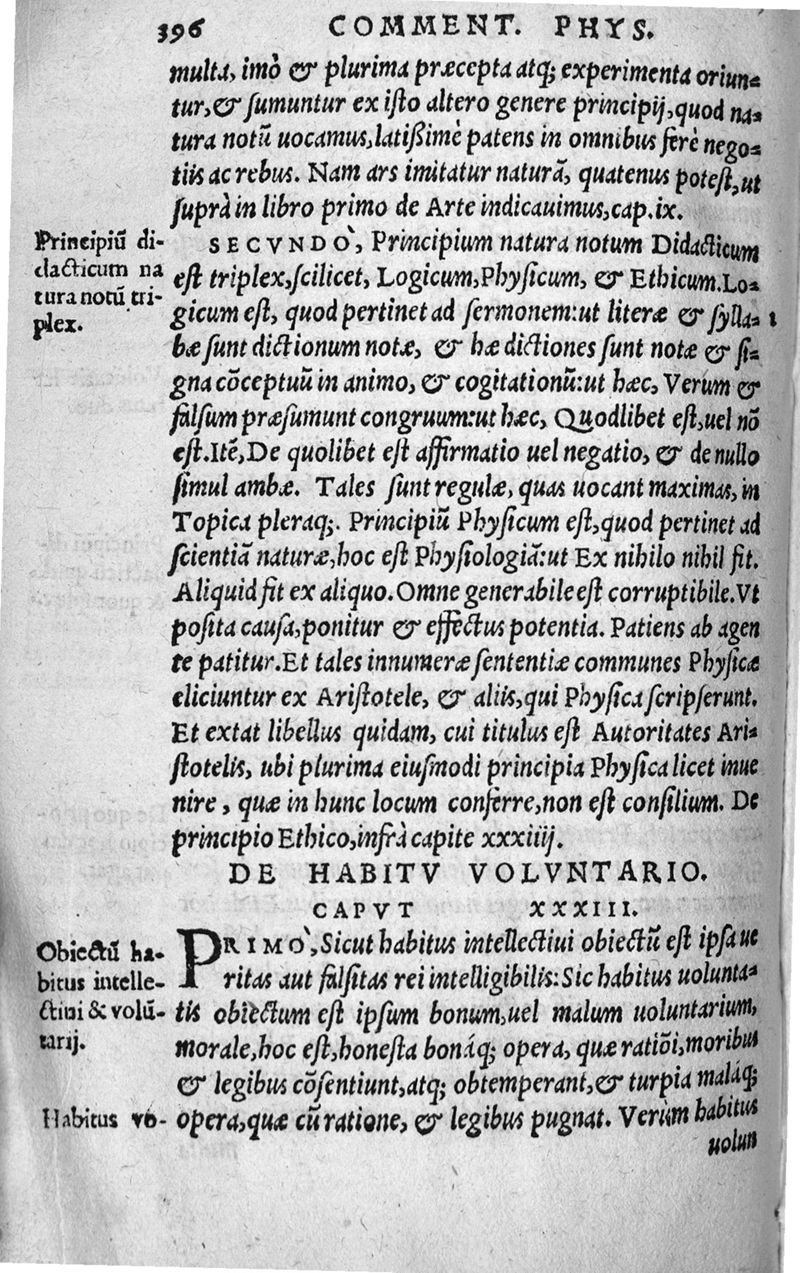 396 COMMENT. PHYS.
multa, imò & plurima præcepta atq; experimenta oriun-
tur, & sumuntur ex isto altero genere principij, quod na-
tura notũ uocamus, latißimè patens in omnibus ferè nego-
tiis ac rebus. Nam ars imitatur naturã, quatenus potest, ut
suprà in libro primo de Arte indicauimus, cap. ix.
Principiũ di-
dacticum na
tura notũ tri-
plex.
SECVNDÒ, Principium natura notum Didacticum
est triplex, scilicet, Logicum, Physicum, & Ethicum. Lo-
gicum est, quod pertinet ad sermonem: ut literæ & sylla-
bæ sunt dictionum notæ, & hæ dictiones sunt notæ & si-
gna cõceptuũ in animo, & cogitationũ: ut hæc, Verum &
falsum præsumunt congruum: ut hæc, Quodlibet est, uel nõ
est. Itẽ, De quolibet est affirmatio uel negatio, & de nullo
simul ambæ. Tales sunt regulæ, quas uocant maximas, in
Topica pleraq;. Principiũ Physicum est, quod pertinet ad
scientiã naturæ, hoc est Physiologiã: ut Ex nihilo nihil fit.
Aliquid fit ex aliquo. Omne generabile est corruptibile. Vt
posita causa, ponitur & effectus potentia. Patiens ab agen
te patitur. Et tales innumeræ sententiæ communes Physicæ
eliciuntur ex Aristotele, & aliis, qui Physica scripserunt.
Et extat libellus quidam, cui titulus est Autoritates Ari-
stotelis, ubi plurima eiusmodi principia Physica licet inue
nire, quæ in hunc locum conferre, non est consilium. De
principio Ethico, infrà capite xxxiiij.
DE HABITV VOLVNTARIO.
CAPVT XXXIII.
Obiectũ ha-
bitus intelle-
ctiui & volũ-
tarij.
PRIMÒ, Sicut habitus intellectiui obiectũ est ipsa ue
ritas aut falsitas rei intelligibilis: Sic habitus uolunta-
tis obiectum est ipsum bonum, uel malum uoluntarium,
morale, hoc est, honesta bonáq; opera, quæ ratiõi, moribus
& legibus cõsentiunt, atq; obtemperant, & turpia maláq;
Habitus vo-
opera, quæ cũ ratione, & legibus pugnat. Verùm habitus
uolun